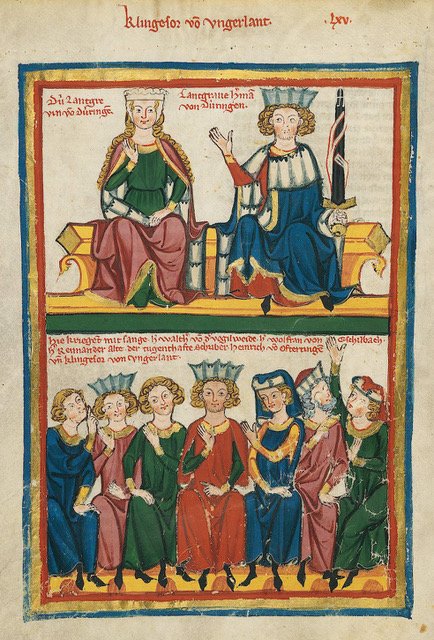 Klingesor võ vngerlant.
.lxv.
Dú Lantgre
vin võ Dúringē.
Lantgraue h͛mã
von Dúringen.
Hie krieget mit sange. h̾ walth͛ võ d͛ vogilweide. h̾ wolfran von Eschilbach.
h̾ Reinander alte. der tugenthafte schriber. heinrich võ Ofterdingē
vñ klingesor von vngerlant.